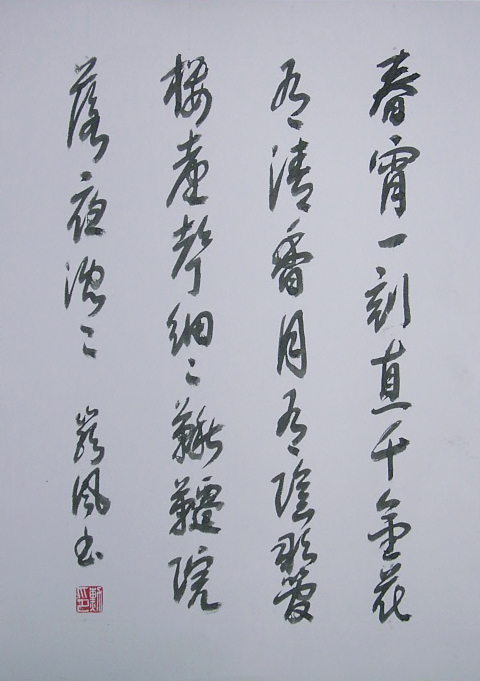 春宵一刻直千金花
有清香月有陰歌管
樓臺聲細々鞦韆院
落夜沈々 巌風書